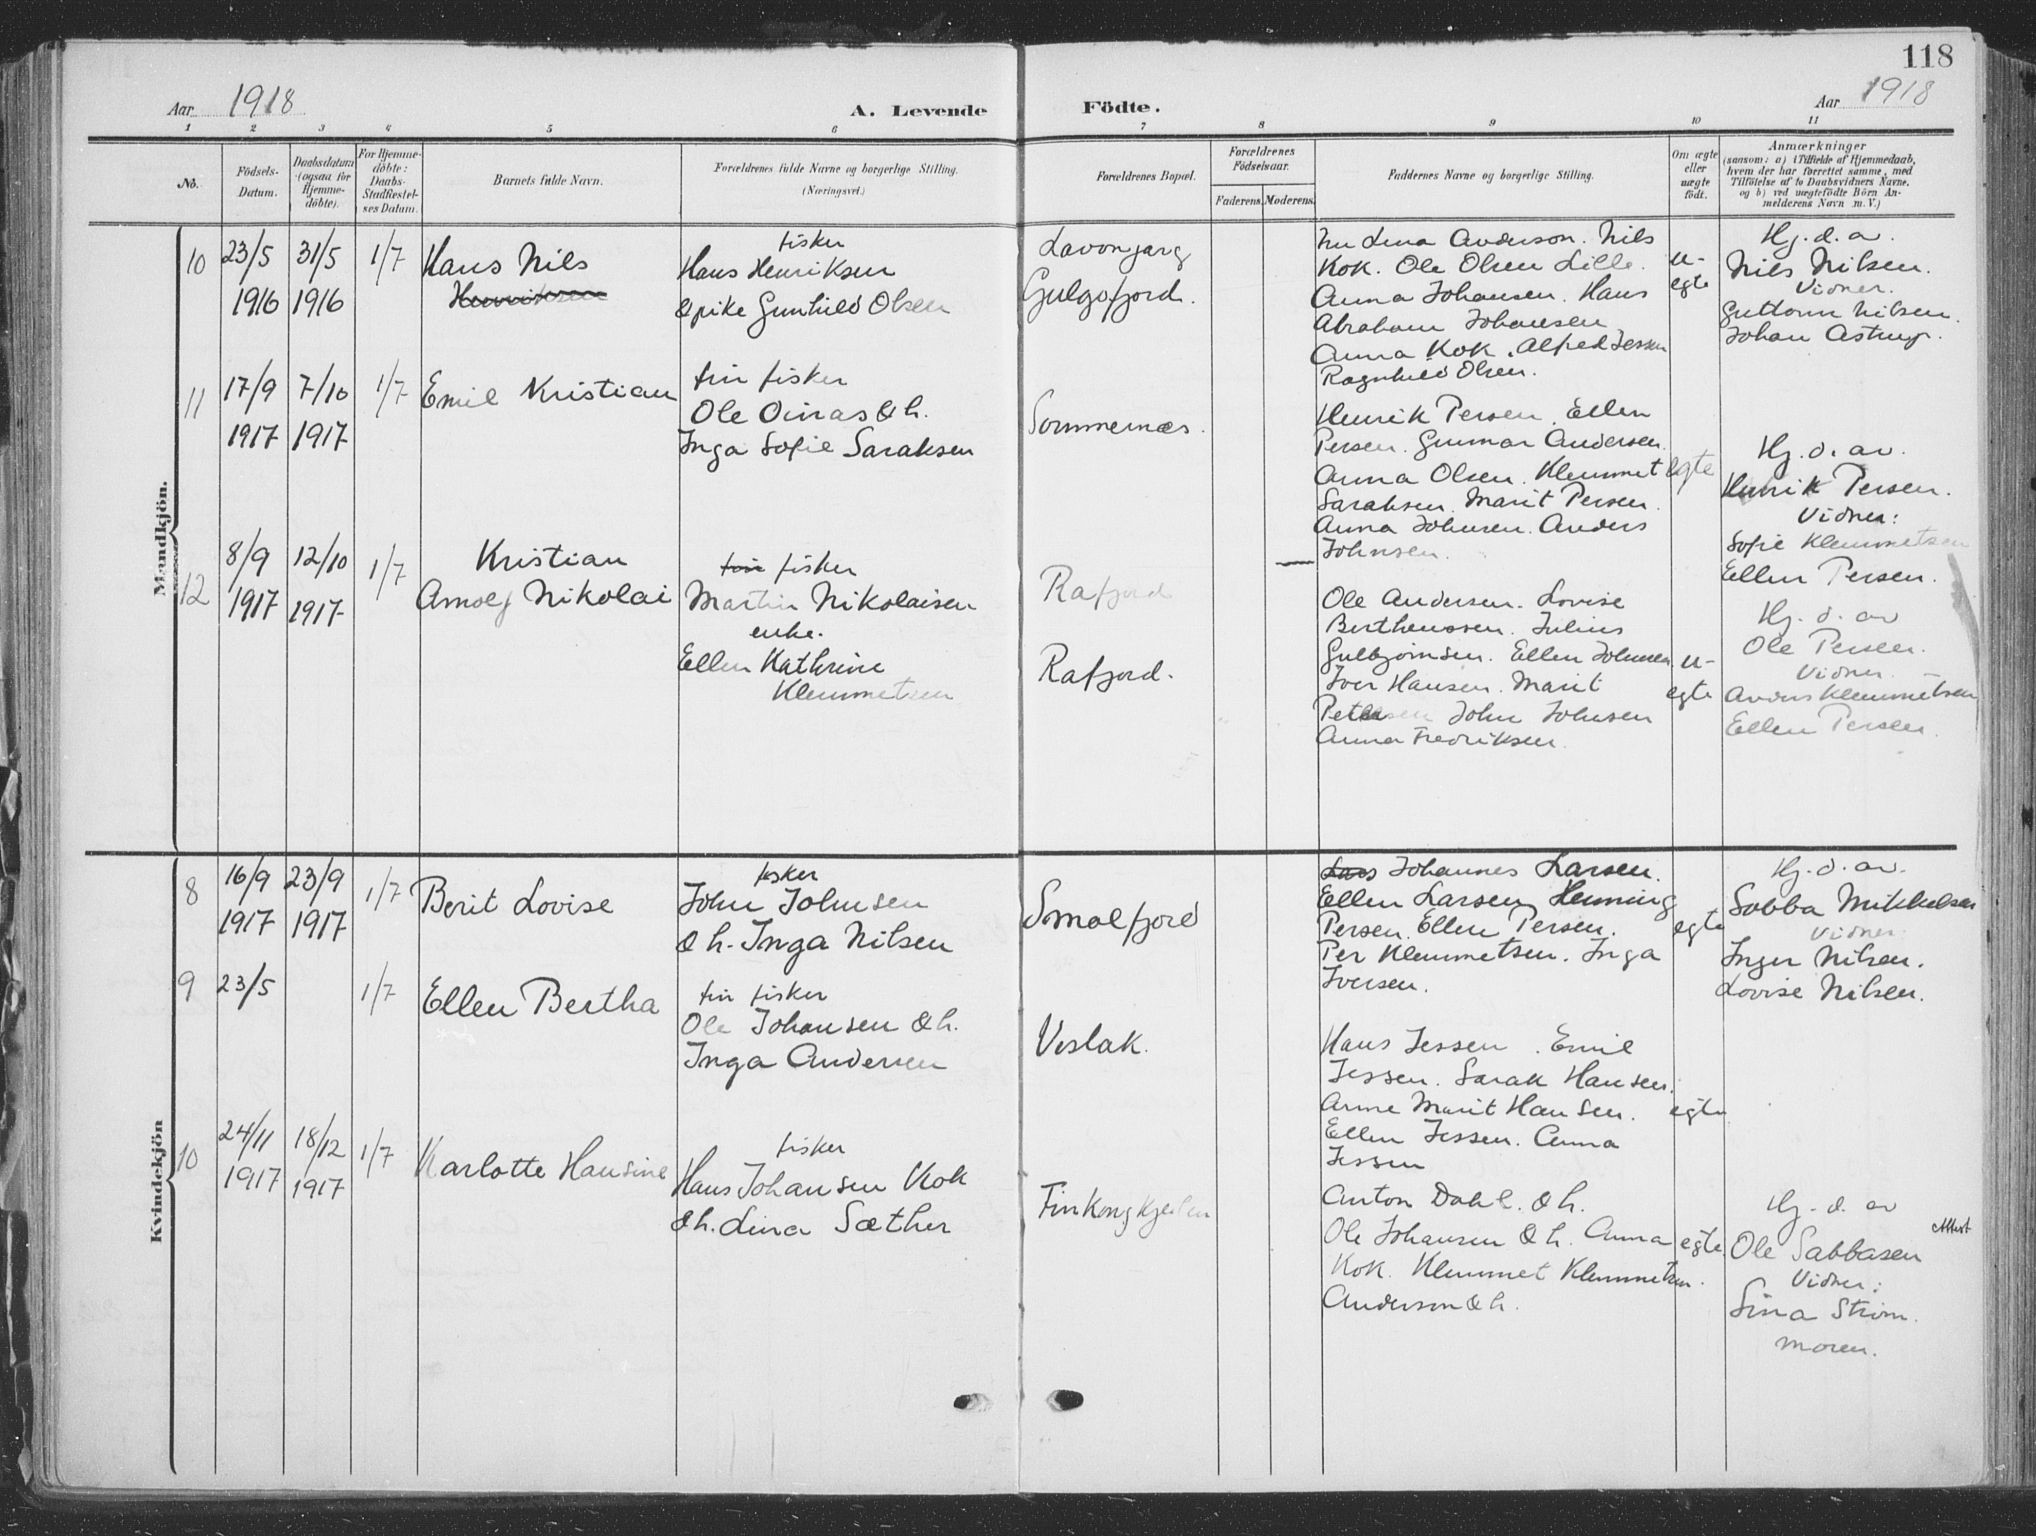 118
Aar 1918
A. Levende Födte.
Aar 1918
1 2 3 4 5 6 7 8 9 10 11
No.
Födsels-
Datum.
Daabsdatum
(ogsaa for
Hjemme-
döbte).
For Hjemme-
döbte:
Daabs-
Stadfæstel-
ses Datum.
Barnets fulde Navn.
Forældrenes fulde Navne og borgerlige Stilling.
(Næringsvei.)
Forældrenes Bopæl.
Forældrenes
Födselsaar.
Faderens. Moderens.
Faddernes Navne og borgerlige Stilling.
Om ægte
eller
uægte
födt.
Anmærkninger
(saasom: a) i Tilfælde af Hjemmedaab,
hvem der har forrettet samme, med
Tilföielse af to Daabsvidners Navne,
og b) ved uægtefödte Börn An-
melderens Navn m. V.)
Mandkjön.
10
23/5
1916
31/5
1916
1/7
Hans Nils
Henriksen
fisker
Hans Henriksen
Gunhild Olsen
Lavonjarg
Gulgofjord.
Lina Anderson. Nils
Kok. Ole Olsen Lille.
Anna Johansen. Hans
Abraham Johansen
Anna Kok. Alfred Jessen
Ragnhild Olsen.
u-
egte
Hj. d. av.
Nils Nilsen.
Vidner.
Guttorm Nilsen.
Johan Astrup.
11
17/9
1917
7/10
1917
1/7
Emil Kristian
fin fisker
Ole Oinas & h.
Inga Sofie Saraksen
Sommernæs.
Henrik Persen. Ellen
Persen. Gunnar Andersen.
Anna Olsen. Klemmet
Saraksen. Marit Persen.
Anna Johnsen. Anders
Johnsen.
egte
Hj. d. av.
Henrik Persen.
Vidner:
Sofie Klemmetsen
Ellen Persen.
12
8/9
1917
12/10
1917
1/7
Kristian
Arnolf Nikolai
fin fisker
Martin Nikolaisen
enke.
Ellen Kathrine
Klemmetsen
Rafjord
Rafjord.
Ole Andersen. Lovise
Bertheussen. Julius
Gulbjörnsen. Ellen Johnsen
Iver Hansen. Marit
Petersen John Johnsen
Anna Fredriksen.
u-
egte
Hj. d. av
Ole Persen.
Vidner.
Anders Klemmetsen
Ellen Persen.
Kvindekjön
8
16/9
1917
23/9
1917
1/7
Berit Lovise
fisker
John Johnsen
& h. Inga Nilsen
Smalfjord
Lars Johannes Larsen.
Ellen Larsen Henning
Persen. Ellen Persen.
Per Klemmetsen. Inga
Iversen.
egte
Hj. d. av.
Sabba Mikkelsen
Vidner:
Inger Nilsen.
Lovise Nilsen.
9
23/5
1/7
Ellen Bertha
fin fisker
Ole Johansen & h.
Inga Andersen
Veslak.
Hans Jessen. Emil
Jessen. Sarak Hansen.
Anne Marit Hansen.
Ellen Jessen. Anna
Jessen
egte
10
24/11
1917
18/12
1917
1/7
Karlotte Hansine
fisker
Hans Johansen Kok
& h. Lina Sæther
Finkongkjeilen
Anton Dahl. & h.
Ole Johansen & h. Anna
Kok. Klemmet Klemmetsen.
Anderson & h.
egte
Hj. d. av
Attest
Ole Sabbasen
Vidner:
Sina Strøm.
moren.